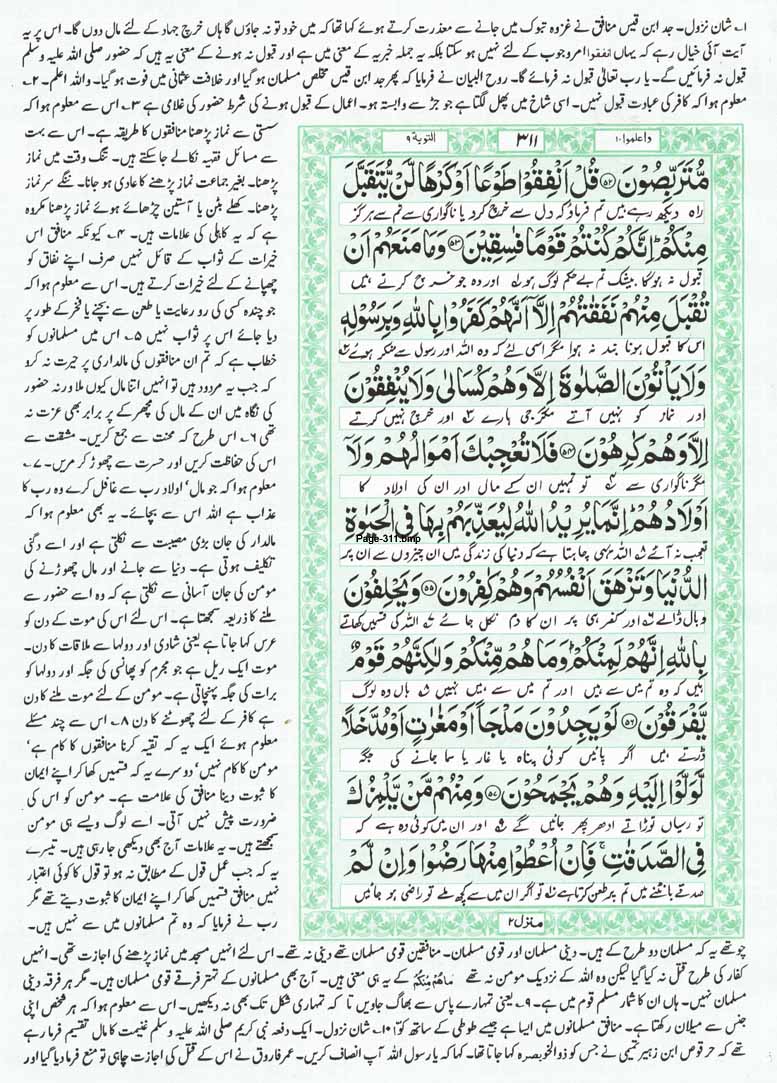 ۱۔ شان نزول۔ جد ابن قیس منافق نے غزوہ تبوک میں جانے سے معذرت کرتے ہوئے کہا تھا کہ میں خود تو نہ جاؤں گا ہاں خرچ جہاد کے لئے مال دوں گا۔ اس پر یہ
آیت آئی خیال رہے کہ یہاں انفقوا امر وجوب کے لئے نہیں ہو سکتا بلکہ یہ جملہ خبریہ کے معنی میں ہے اور قبول نہ ہونے کے معنی یہ ہیں کہ حضور صلی اللہ علیہ وسلم
قبول نہ فرمائیں گے۔ یا رب تعالٰی قبول نہ فرمائے گا۔ روح البیان نے فرمایا کہ پھر جد ابن قیس مخلص مسلمان ہو گیا اور خلافت عثمانی میں فوت ہو گیا۔ واللہ اعلم۔ ۲۔
معلوم ہوا کہ کافر کی عبادت قبول نہیں۔ اسی شاخ میں پھل لگتا ہے جو جڑ سے وابستہ ہو۔ اعمال کے قبول ہونے کی شرط حضور کی غلامی ہے ۳۔ اس سے معلوم ہوا کہ
سستی سے نماز پڑھنا منافقوں کا طریقہ ہے۔ اس سے بہت
سے مسائل فقہیہ نکالے جا سکتے ہیں۔ تنگ وقت میں نماز
پڑھنا۔ بغیر جماعت نماز پڑھنے کا عادی ہو جانا۔ ننگے سر نماز
پڑھنا۔ کھلے بٹن یا آستین چڑھائے ہوئے نماز پڑھنا مکروہ
ہے کہ یہ کاہلی کی علامات ہیں۔ ۴۔ کیونکہ منافق اس
خیرات کے ثواب کے قائل نہیں صرف اپنے نفاق کو
چھپانے کے لئے خیرات کرتے ہیں۔ اس سے معلوم ہوا کہ
جو چندہ کسی رو رعایت یا طعن سے بچنے یا فخر کے طور پر
دیا جائے اس پر ثواب نہیں ۵۔ اس میں مسلمانوں کو
خطاب ہے کہ تم ان منافقوں کی مالداری پر حیرت نہ کرو
کہ جب یہ مردود ہیں تو انہیں اتنا مال کیوں ملا ورنہ حضور
کی نگاہ میں ان کے مال کی مچھر کے پر برابر بھی عزت نہ
تھی ۶۔ اس طرح کہ محنت سے جمع کریں۔ مشقت سے
اس کی حفاظت کریں اور حسرت سے چھوڑ کر مریں۔ ۷۔
معلوم ہوا کہ جو مال' اولاد رب سے غافل کرے وہ رب کا
عذاب ہے اللہ اس سے بچائے۔ یہ بھی معلوم ہوا کہ
مالدار کی جان بڑی مصیبت سے نکلتی ہے اور اسے دگنی
تکلیف ہوتی ہے۔ دنیا سے جانے اور مال چھوڑنے کی
مومن کی جان آسانی سے نکلتی ہے کہ وہ اسے حضور سے
ملنے کا ذریعہ سمجھتا ہے۔ اس لئے اس کی موت کے دن کو
عرس کہا جاتا ہے یعنی شادی اور دولہا سے ملاقات کا دن۔
موت ایک ریل ہے جو مجرم کو پھانسی کی جگہ اور دولہا کو
برات کی جگہ پہنچاتی ہے۔ مومن کے لئے موت ملنے کا دن
ہے کافر کے لئے چھوٹنے کا دن ۸۔ اس سے چند مسئلے
معلوم ہوئے ایک یہ کہ تقیہ کرنا منافقوں کا کام ہے'
مومن کا کام نہیں' دوسرے یہ کہ قسمیں کھا کر اپنے ایمان
کا ثبوت دینا منافق کی علامت ہے۔ مومن کو اس کی
ضرورت پیش نہیں آتی۔ اسے لوگ ویسے ہی مومن
سمجھتے ہیں۔ یہ علامات آج بھی دیکھی جا رہی ہیں۔ تیسرے
یہ کہ جب عمل قول کے مطابق نہ ہو تو قول کا کوئی اعتبار
نہیں منافق قسمیں کھا کر اپنے ایمان کا ثبوت دیتے تھے مگر
رب نے فرمایا کہ وہ تم مسلمانوں میں سے نہیں ہیں۔
واعلموا ۱۰ ۳۱۱ التوبة ۹
مُّتَرَبِّصُوْنَ ﴿۵۲﴾ قُلْ اَنْفِقُوْا طَوْعًا اَوْ كَرْهًا لَّنْ يُّتَقَبَّلَ
راہ دیکھ رہے ہیں تم فرماؤ کہ دل سے خرچ کرو یا ناگواری سے تم سے ہرگز
مِنْكُمْ ؕ اِنَّكُمْ كُنْتُمْ قَوْمًا فٰسِقِيْنَ ﴿۵۳﴾ وَمَا مَنَعَهُمْ اَنْ
قبول نہ ہوگا بیشک تم بے حکم لوگ ہو اور وہ جو خرچ کرتے ہیں
تُقْبَلَ مِنْهُمْ نَفَقٰتُهُمْ اِلَّاۤ اَنَّهُمْ كَفَرُوْا بِاللّٰهِ وَبِرَسُوْلِهٖ
اس کا قبول ہونا بند نہ ہوا مگر اسی لئے کہ وہ اللہ اور رسول سے منکر ہوئے
وَلَا يَاْتُوْنَ الصَّلٰوةَ اِلَّا وَهُمْ كُسَالٰى وَلَا يُنْفِقُوْنَ
اور نماز کو نہیں آتے مگر جی ہارے اور خرچ نہیں کرتے
اِلَّا وَهُمْ كٰرِهُوْنَ ﴿۵۴﴾ فَلَا تُعْجِبْكَ اَمْوَالُهُمْ وَلَاۤ
مگر ناگواری سے تو تمہیں ان کے مال اور ان کی اولاد کا
اَوْلَادُهُمْ ؕ اِنَّمَا يُرِيْدُ اللّٰهُ لِيُعَذِّبَهُمْ بِهَا فِى الْحَيٰوةِ
Page-311.bmp
تعجب نہ آئے اللہ یہی چاہتا ہے کہ دنیا کی زندگی میں ان چیزوں سے ان پر
الدُّنْيَا وَتَزْهَقَ اَنْفُسُهُمْ وَهُمْ كٰفِرُوْنَ ﴿۵۵﴾ وَيَحْلِفُوْنَ
وبال ڈالے اور کفر ہی پر ان کا دم نکل جائے اللہ کی قسمیں کھاتے
بِاللّٰهِ اِنَّهُمْ لَمِنْكُمْ ؕ وَمَا هُمْ مِّنْكُمْ وَلٰكِنَّهُمْ قَوْمٌ
ہیں کہ وہ تم میں سے ہیں اور تم میں سے ہیں نہیں ہاں وہ لوگ
يَّفْرَقُوْنَ ﴿۵۶﴾ لَوْ يَجِدُوْنَ مَلْجَاً اَوْ مَغٰرٰتٍ اَوْ مُدَّخَلًا
ڈرتے ہیں اگر پائیں کوئی پناہ یا غار یا سما جانے کی جگہ
لَّوَلَّوْا اِلَيْهِ وَهُمْ يَجْمَحُوْنَ ﴿۵۷﴾ وَمِنْهُمْ مَّنْ يَّلْمِزُكَ
تو رسیاں تڑاتے ادھر پھر جائیں گے اور ان میں کوئی وہ ہے کہ
فِى الصَّدَقٰتِ ۚ فَاِنْ اُعْطُوْا مِنْهَا رَضُوْا وَاِنْ لَّمْ
صدقے بانٹنے میں تم پر طعن کرتا ہے تو اگر ان میں سے کچھ ملے تو راضی ہو جائیں
منزل ۲
چوتھے یہ کہ مسلمان دو طرح کے ہیں۔ دینی مسلمان اور قومی مسلمان۔ منافقین قومی مسلمان تھے دینی نہ تھے۔ اس لئے انہیں مسجد میں نماز پڑھنے کی اجازت تھی۔ انہیں
کفار کی طرح قتل نہ کیا گیا لیکن وہ اللہ کے نزدیک مومن نہ تھے مَاهُمْ مِنْكُمْ کے یہ ہی معنی ہیں۔ آج بھی مسلمانوں کے تہتر فرقے قومی مسلمان ہیں۔ مگر ہر فرقہ دینی
مسلمان نہیں۔ ہاں ان کا شمار مسلم قوم میں ہے۔ ۹۔ یعنی تمہارے پاس سے بھاگ جاویں تا کہ تمہاری شکل تک بھی نہ دیکھیں۔ اس سے معلوم ہوا کہ ہر شخص اپنی
جنس سے میلان رکھتا ہے۔ منافق مسلمانوں میں ایسا ہے جیسے طوطی کے ساتھ کوّا ۱۰۔ شان نزول۔ ایک دفعہ نبی کریم صلی اللہ علیہ وسلم غنیمت کا مال تقسیم فرما رہے
تھے کہ حرقوص ابن زہیر تمیمی نے جس کو ذوالخویصرہ کہا جاتا تھا۔ کہا کہ یا رسول اللہ آپ انصاف کریں۔ عمر فاروق نے اس کے قتل کی اجازت چاہی تو منع فرما دیا گیا اور